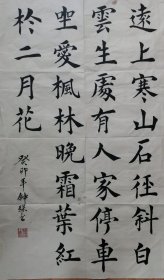 遠上寒山石徑斜白
雲生處有人家停車
坐愛楓林晚霜葉紅
於二月花
癸卯年